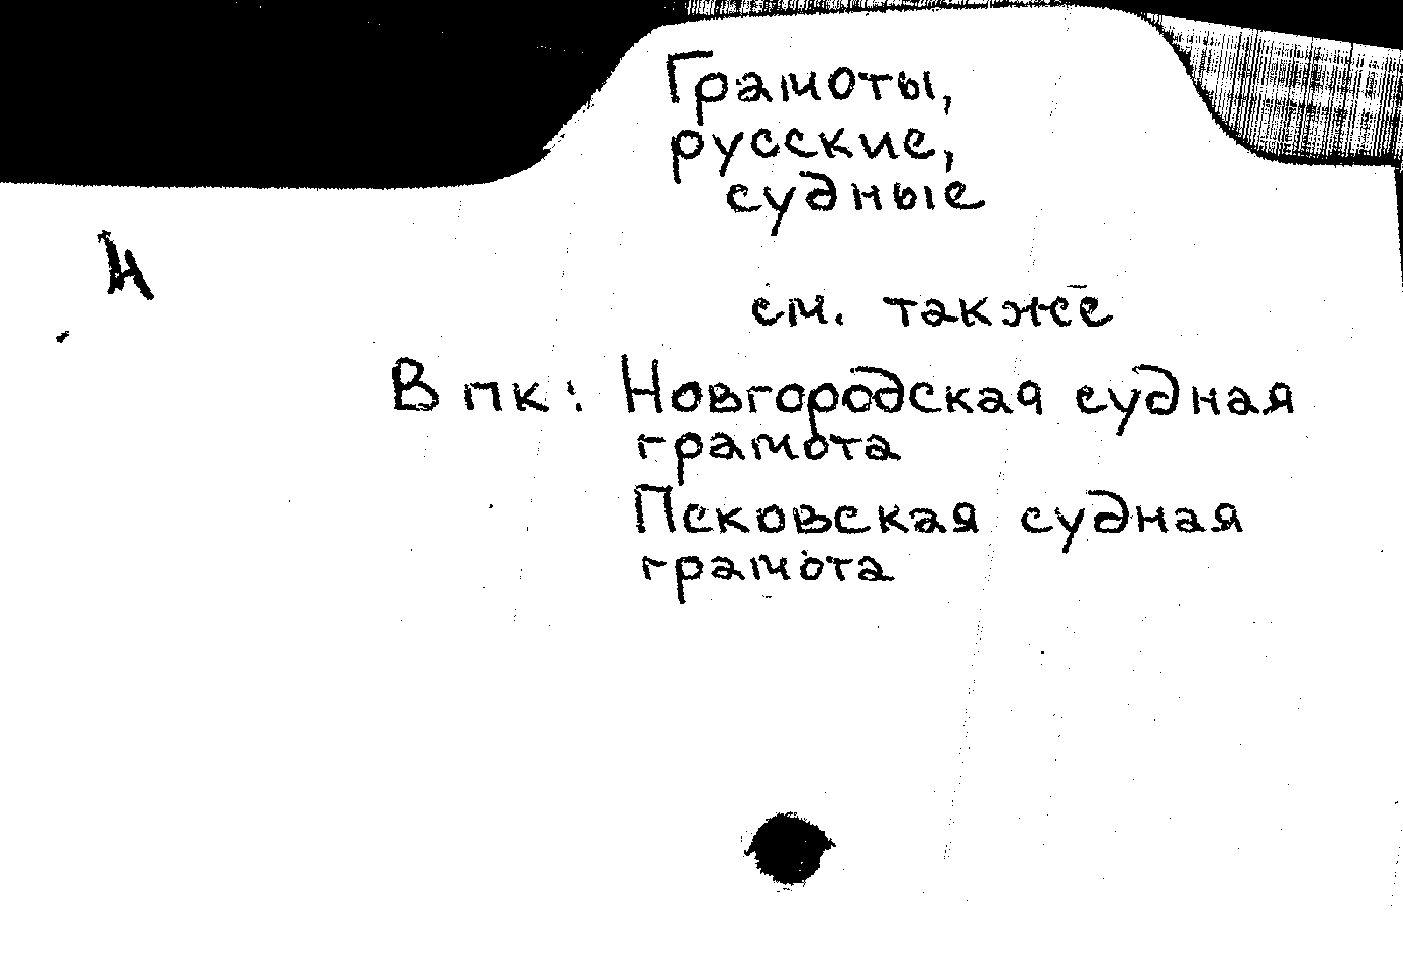 Грамоты,
русские,
судные
см. также
В пк: Новгородская судная
грамота
Псковская судная
грамота